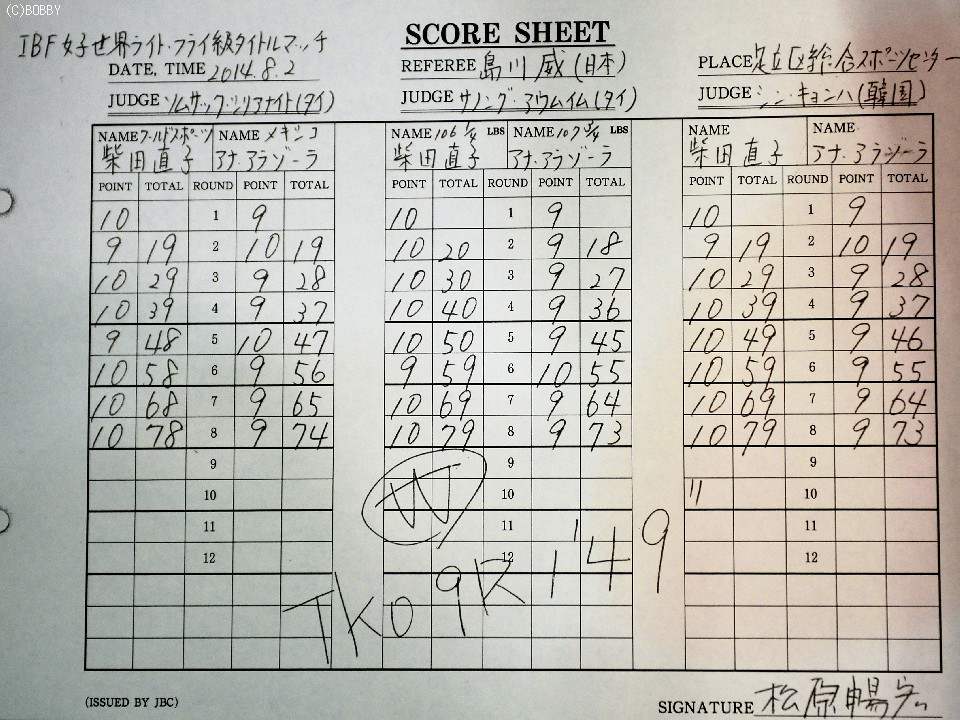 (C)BOBBY
SCORE SHEET
IBF女子世界ライト・フライ級タイトルマッチ
DATE, TIME 2014.8.2 REFEREE 島川威(日本) PLACE 足立区総合スポーツセンター
JUDGE ソムサック・シリアナイト(タイ) JUDGE サノング・アウムイム(タイ) JUDGE シン・キョンハ(韓国)
NAME ワールドスポーツ NAME メキシコ NAME 106 1/4 LBS NAME 107 3/4 LBS NAME NAME
柴田直子 アナ・アラゾーラ 柴田直子 アナ・アラゾーラ 柴田直子 アナ・アラゾーラ
POINT TOTAL ROUND POINT TOTAL POINT TOTAL ROUND POINT TOTAL POINT TOTAL ROUND POINT TOTAL
10 1 9 10 1 9 10 1 9
9 19 2 10 19 10 20 2 9 18 9 19 2 10 19
10 29 3 9 28 10 30 3 9 27 10 29 3 9 28
10 39 4 9 37 10 40 4 9 36 10 39 4 9 37
9 48 5 10 47 10 50 5 9 45 10 49 5 9 46
10 58 6 9 56 9 59 6 10 55 10 59 6 9 55
10 68 7 9 65 10 69 7 9 64 10 69 7 9 64
10 78 8 9 74 10 79 8 9 73 10 79 8 9 73
9 9 9
10 W 10 10
11 11 11
12 12 12
TKO 9R 1'49
(ISSUED BY JBC)
SIGNATURE 松原暢宏